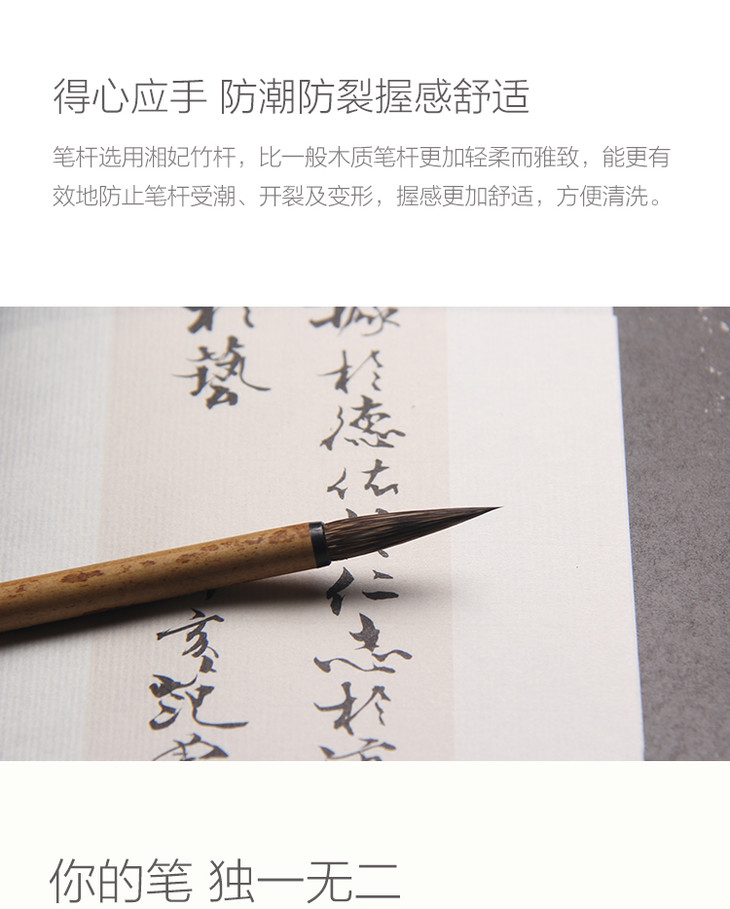 得心应手 防潮防裂握感舒适
笔杆选用湘妃竹杆，比一般木质笔杆更加轻柔而雅致，能更有
效地防止笔杆受潮、开裂及变形，握感更加舒适，方便清洗。
據於德依於仁志於
於藝
你的笔 独一无二